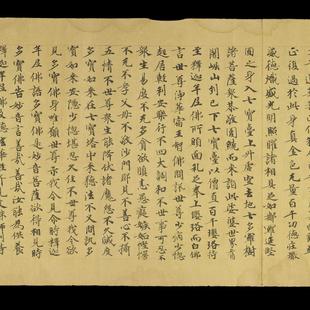 正復過於此身真金色无量百千功德莊嚴
威德熾盛光明照曜諸相具足如那羅延堅
固之身入七寶臺上昇虛空去地七多羅樹
諸菩薩眾恭敬圍繞而來詣此娑婆世界耆
闍崛山到已下七寶臺以價直百千瓔珞持
至釋迦牟尼佛所頭面礼足奉上瓔珞而白佛
言世尊淨華宿王智佛問訊世尊少病少惱
起居輕利安樂行不四大調和不世事可忍不
眾生易度不无多貪欲瞋恚愚癡嫉妬慳慢
不无不孝父母不敬沙門邪見不善心不攝
五情不世尊眾生能降伏諸魔怨不久滅度
多寶如來在七寶塔中來聽法不又問訊多
寶如來安隱少惱堪忍久住不世尊我今欲
見多寶佛身唯願世尊示我令見尒時釋迦
牟尼佛語多寶佛是妙音菩薩欲得相見時
多寶佛告妙音言善哉善哉汝能為供養